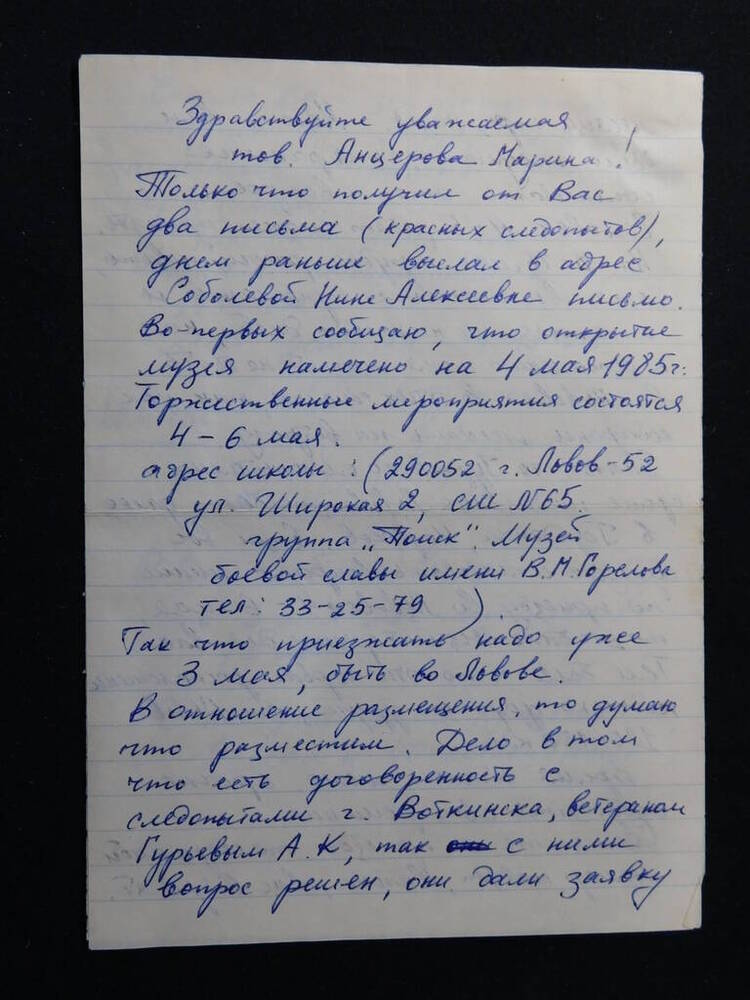 Здравствуйте уважаемая
тов. Анцерова Марина!
Только что получил от Вас
два письма (красных следопытов),
днем раньше выслал в адрес
Соболевой Нине Алексеевне письмо.
Во-первых сообщаю, что открытие
музея намечено на 4 мая 1985г.
Торжественные мероприятия состоятся
4-6 мая.
адрес школы: (290052 г. Львов-52
ул. Широкая 2, сш N65.
группа „Поиск". Музей
боевой славы имени В.М.Горелова
тел: 33-25-79 ).
Так что приезжать надо уже
3 мая, быть во Львове.
В отношение размещения, то думаю
что разместим. Дело в том
что есть договоренность с
следопытами г. Воткинска, ветераном
Гурьевым А.К, так с ними
вопрос решен, они дали заявку